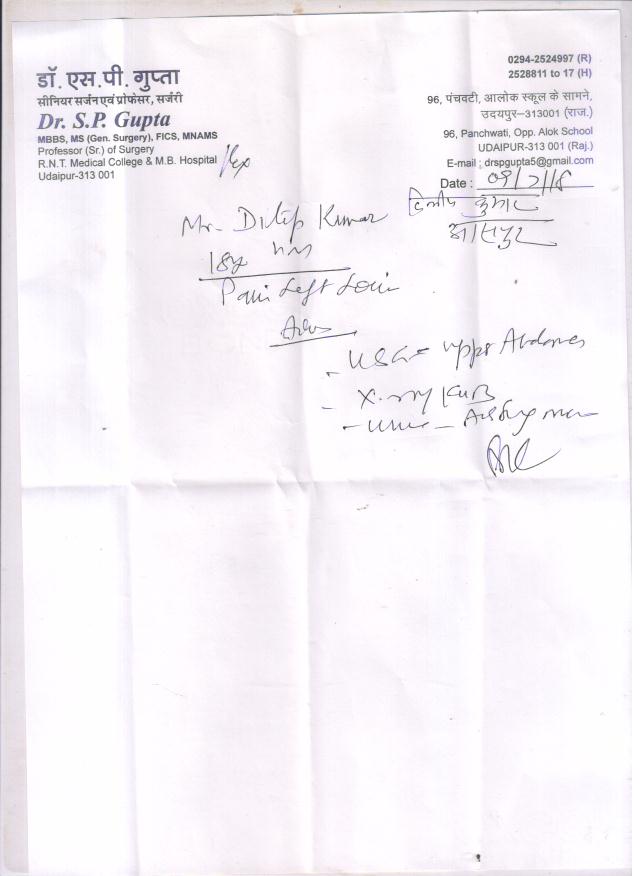 डॉ. एस.पी. गुप्ता
सीनियर सर्जन एवं प्रोफेसर, सर्जरी
Dr. S.P. Gupta
MBBS, MS (Gen. Surgery), FICS, MNAMS
Professor (Sr.) of Surgery
R.N.T. Medical College & M.B. Hospital
Udaipur-313 001
0294-2524997 (R)
2528811 to 17 (H)
96, पंचवटी, आलोक स्कूल के सामने,
उदयपुर–313001 (राज.)
96, Panchwati, Opp. Alok School
UDAIPUR-313 001 (Raj.)
E-mail : drspgupta5@gmail.com
Date :
दिलीप कुमार
Mr. Dilip Kumar
Pain Left Loin
Adv
- USG = upper Abdomen
- X-ray KUB
- urine -